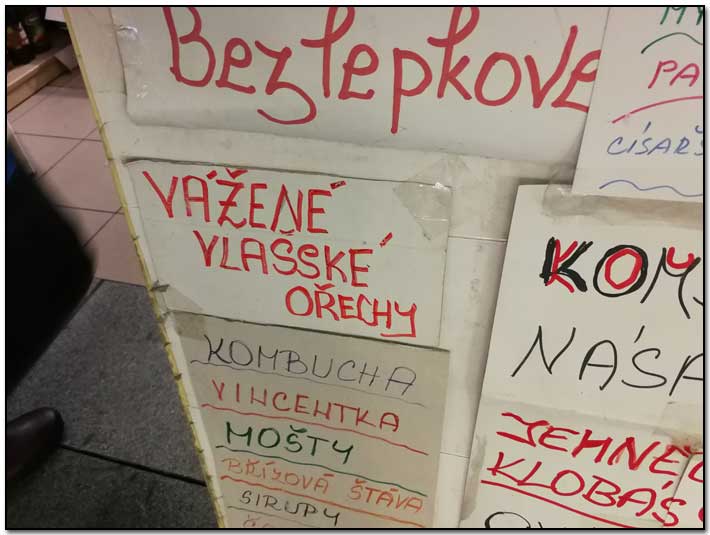 Bezlepkové
VÁŽENÉ
VLAŠSKÉ
OŘECHY
KOMBUCHA
VINCENTKA
MOŠTY
BŘÍZOVÁ ŠŤÁVA
SIRUPY
PA
CÍSAŘS
KOM
NÁSA
JEHNĚČ
KLOBÁS